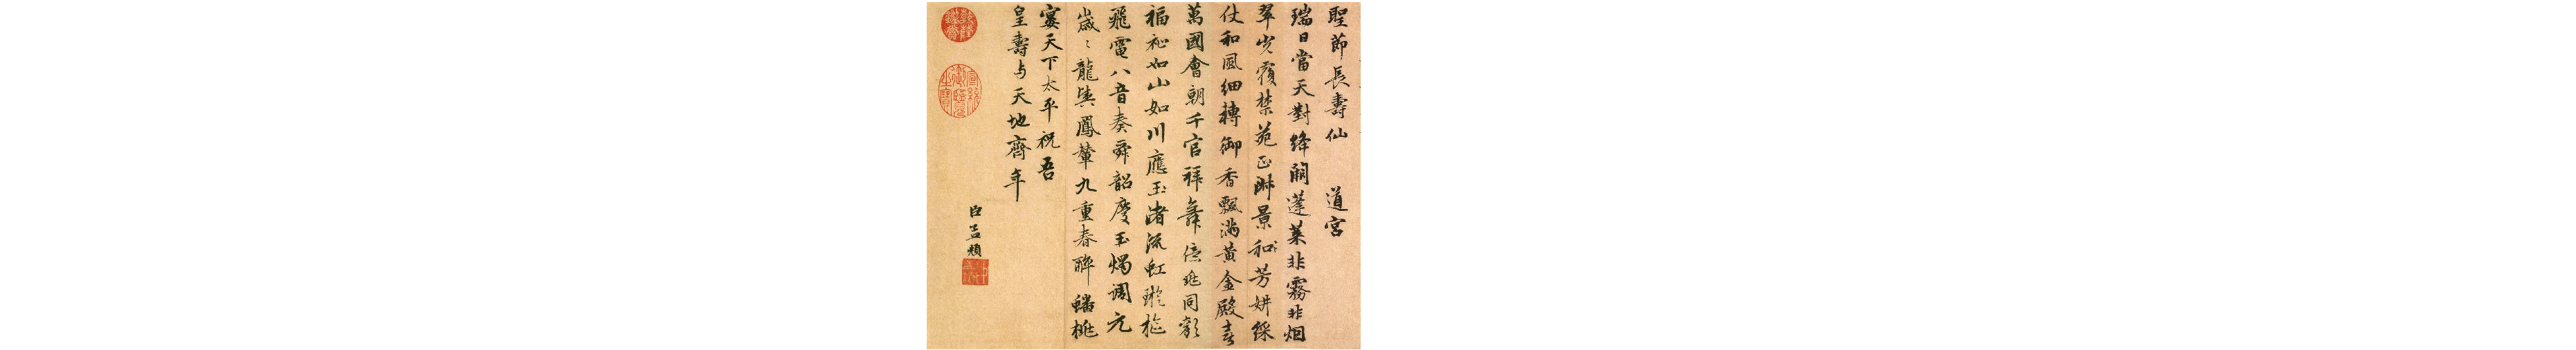 聖節長壽仙 道宮
瑞日當天對絳闕蓬萊非霧非烟
翠光覆禁苑正淑景和芳妍綵
仗和風細轉御香飄滿黃金殿喜
萬國會朝千官拜舞億兆同歡
福祉如山如川應玉渚流虹璇樞
飛電八音奏舜韶慶玉燭調元
歲〻龍輿鳳輦九重春醉蟠桃
宴天下太平祝吾
皇壽与天地齊年
臣孟頫